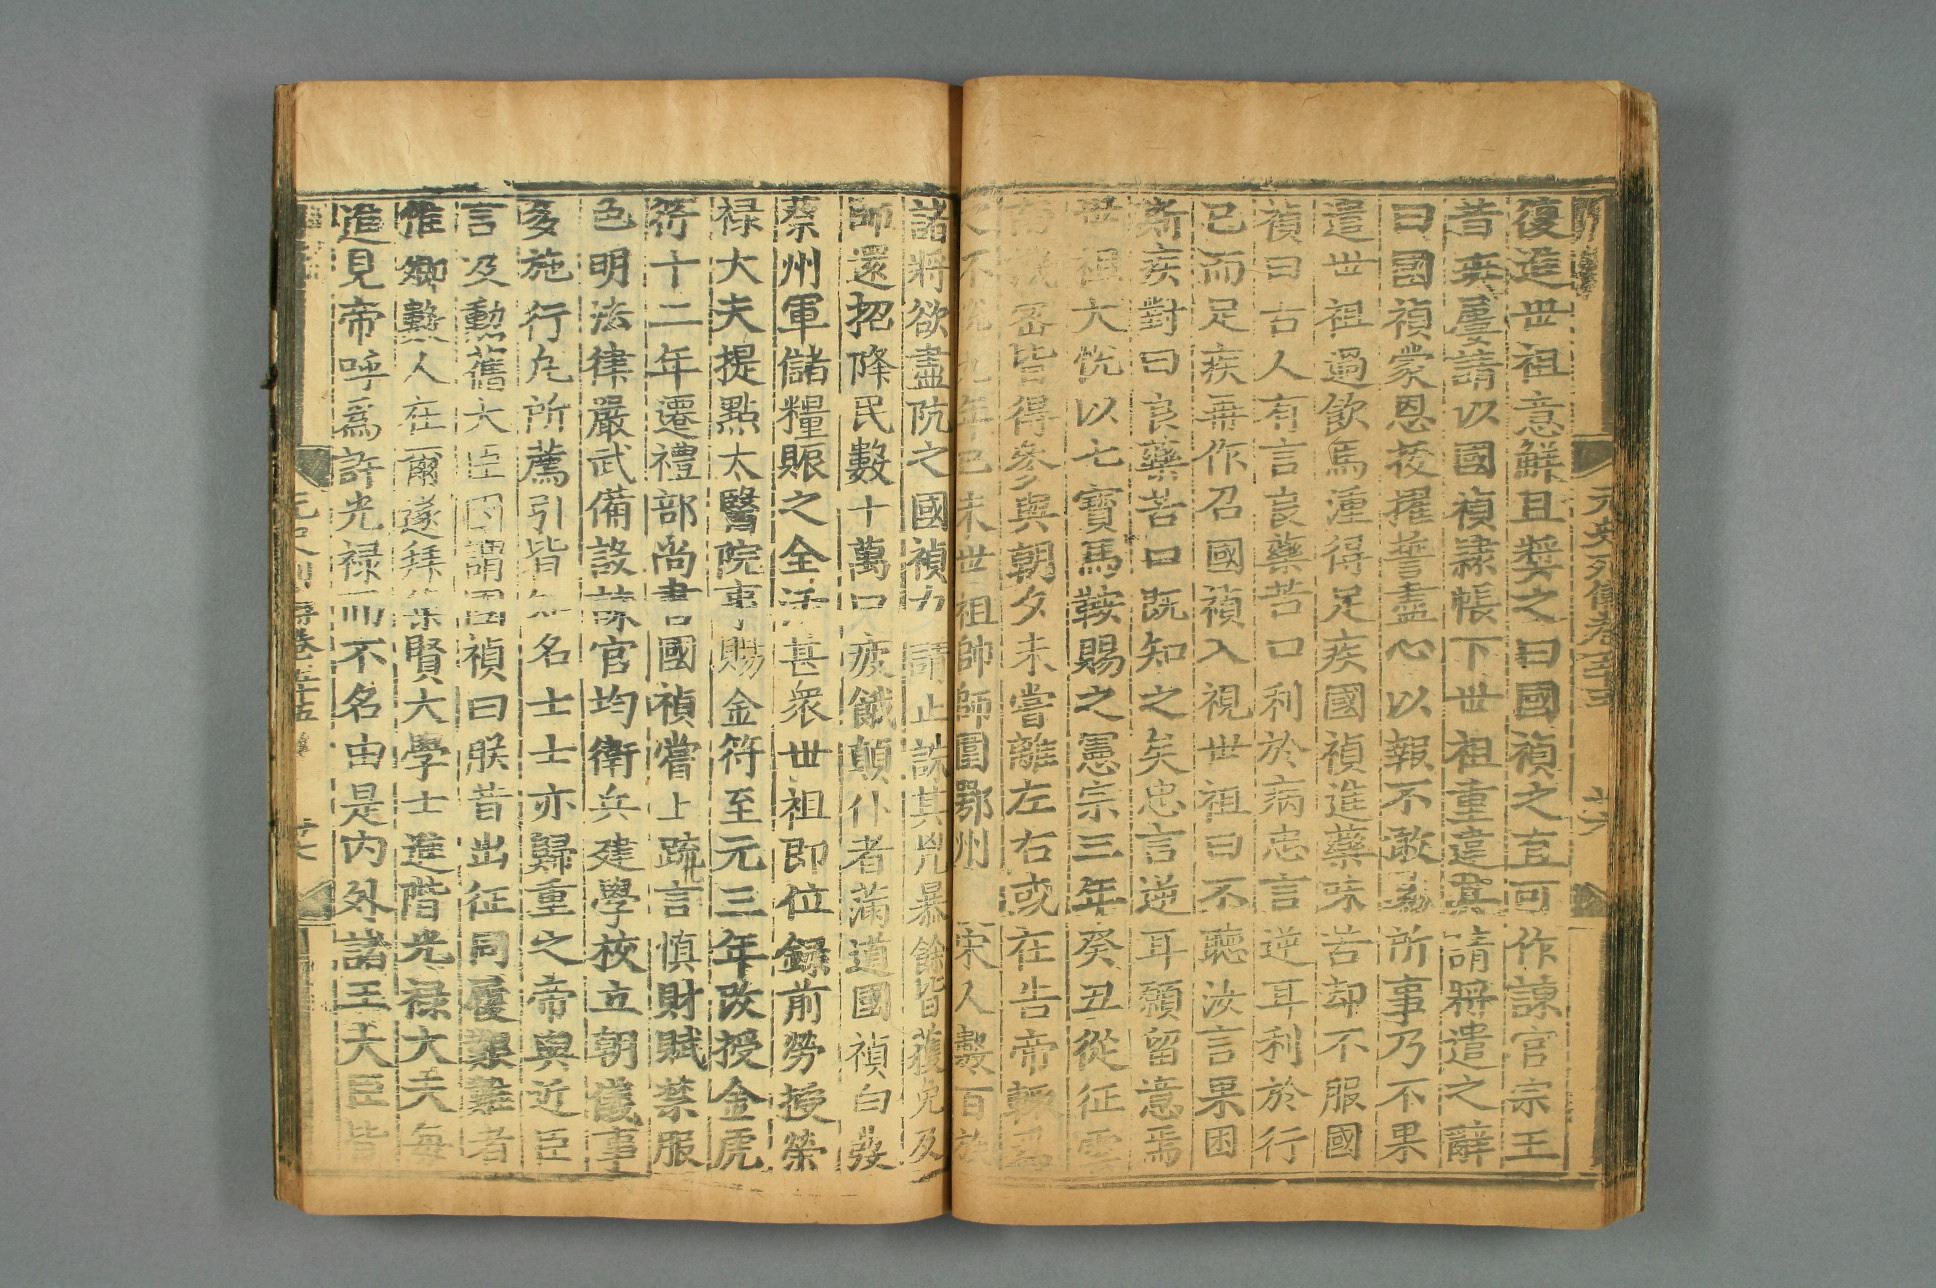 元史列傳卷五十五
廿六
復進世祖意鮮且獎之曰國禎之直可作諫官宗王
昔來屢請以國禎隷帳下世祖重違其請將遣之辭
曰國禎蒙恩拔擢誓盡心以報不敢易所事乃不果
遣世祖過飲馬湩得足疾國禎進藥味苦却不服國
禎曰古人有言良藥苦口利於病忠言逆耳利於行
已而足疾再作召國禎入視世祖曰不聽汝言果困
斯疾對曰良藥苦口旣知之矣忠言逆耳願留意焉
世祖大悅以七寶馬鞍賜之憲宗三年癸丑從征雲
南機密皆得參與朝夕未嘗離左右或在告帝輙爲
之不悅九年己未世祖帥師圍鄂州 宋人數百族
諸將欲盡阬之國禎力請止誅其兇暴餘皆獲免及
師還招降民數十萬口疲餓顛仆者滿道國禎白發
蔡州軍儲糧賑之全活甚衆世祖卽位錄前勞授榮
禄大夫提點太醫院事賜金符至元三年改授金虎
符十二年遷禮部尚書國禎嘗上疏言愼財賦禁服
色明法律嚴武備設諫官均衛兵建學校立朝儀事
多施行凡所薦引皆知名士士亦歸重之帝與近臣
言及勳舊大臣因謂國禎曰朕昔出征同履艱難者
惟卿數人在爾遂拜集賢大學士進階光禄大夫每
進見帝呼爲許光禄而不名由是内外諸王大臣皆
元史列傳卷五十五